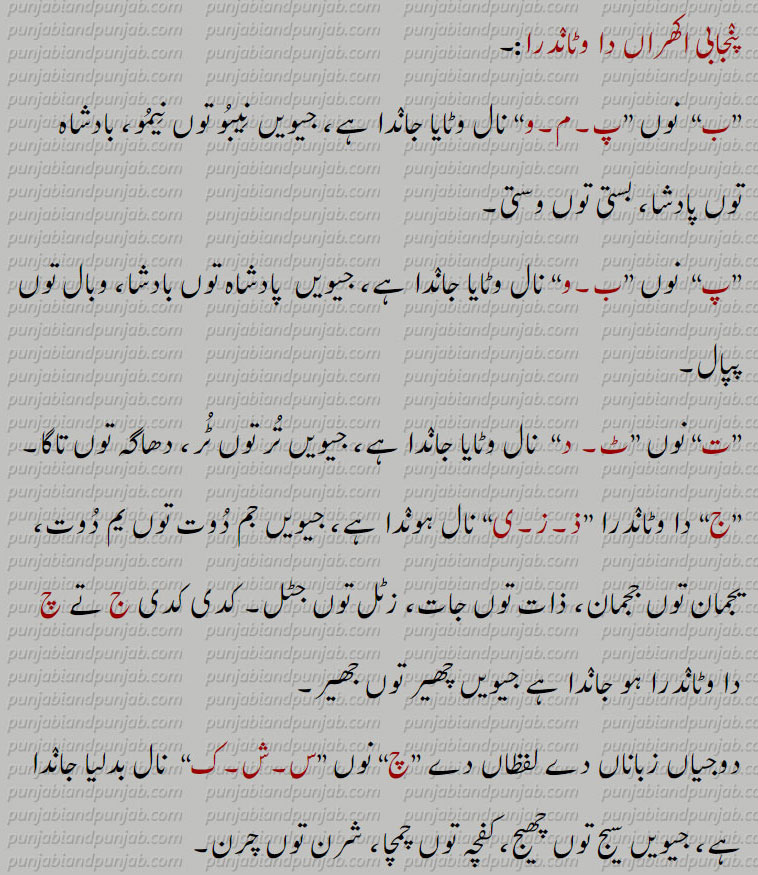 پنجابی اکھراں دا وٹاندرا:۔
”ب“ نوں ”پ۔م۔و“ نال وٹایا جاندا ہے، جیویں نِیبُو توں نِیمُو، بادشاہ
توں پادشا، بستی توں وستی۔
”پ“ نوں ”ب۔و“ نال وٹایا جاندا ہے، جیویں پادشاہ توں بادشا، وبال توں
پپال۔
”ت“نوں ”ٹ۔ د“ نال وٹایا جاندا ہے، جیویں تُر توں ٹُر، دھاگہ توں تاگا۔
”ج“ دا وٹاندرا ”ذ۔ز۔ی“ نال ہوندا ہے، جیویں جم دُوت توں یم دُوت،
یجمان توں ججمان، ذات توں جات، زٹل توں جٹل۔ کدی کدی ج تے چ
دا وٹاندرا ہو جاندا ہے جیویں چھیر توں جھیر۔
دوجیاں زباناں دے لفظاں دے ”چ“ نوں ”س۔ش۔ک“ نال بدلیا جاندا
ہے، جیویں سیج توں چھیج، کفچہ توں چمچا، شرن توں چرن۔
punjabiandpunjab.com